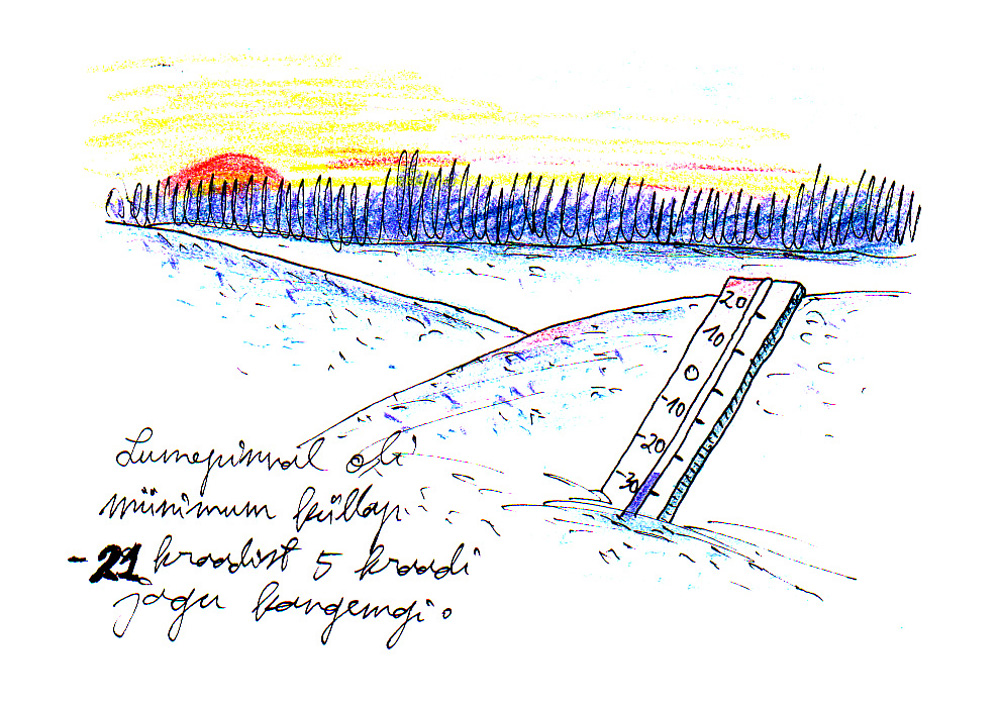 20
10
0
-10
-20
-30
Lumepinnal oli
miinimum küllap
-21 kraadist 5 kraadi
jagu kangemgi.